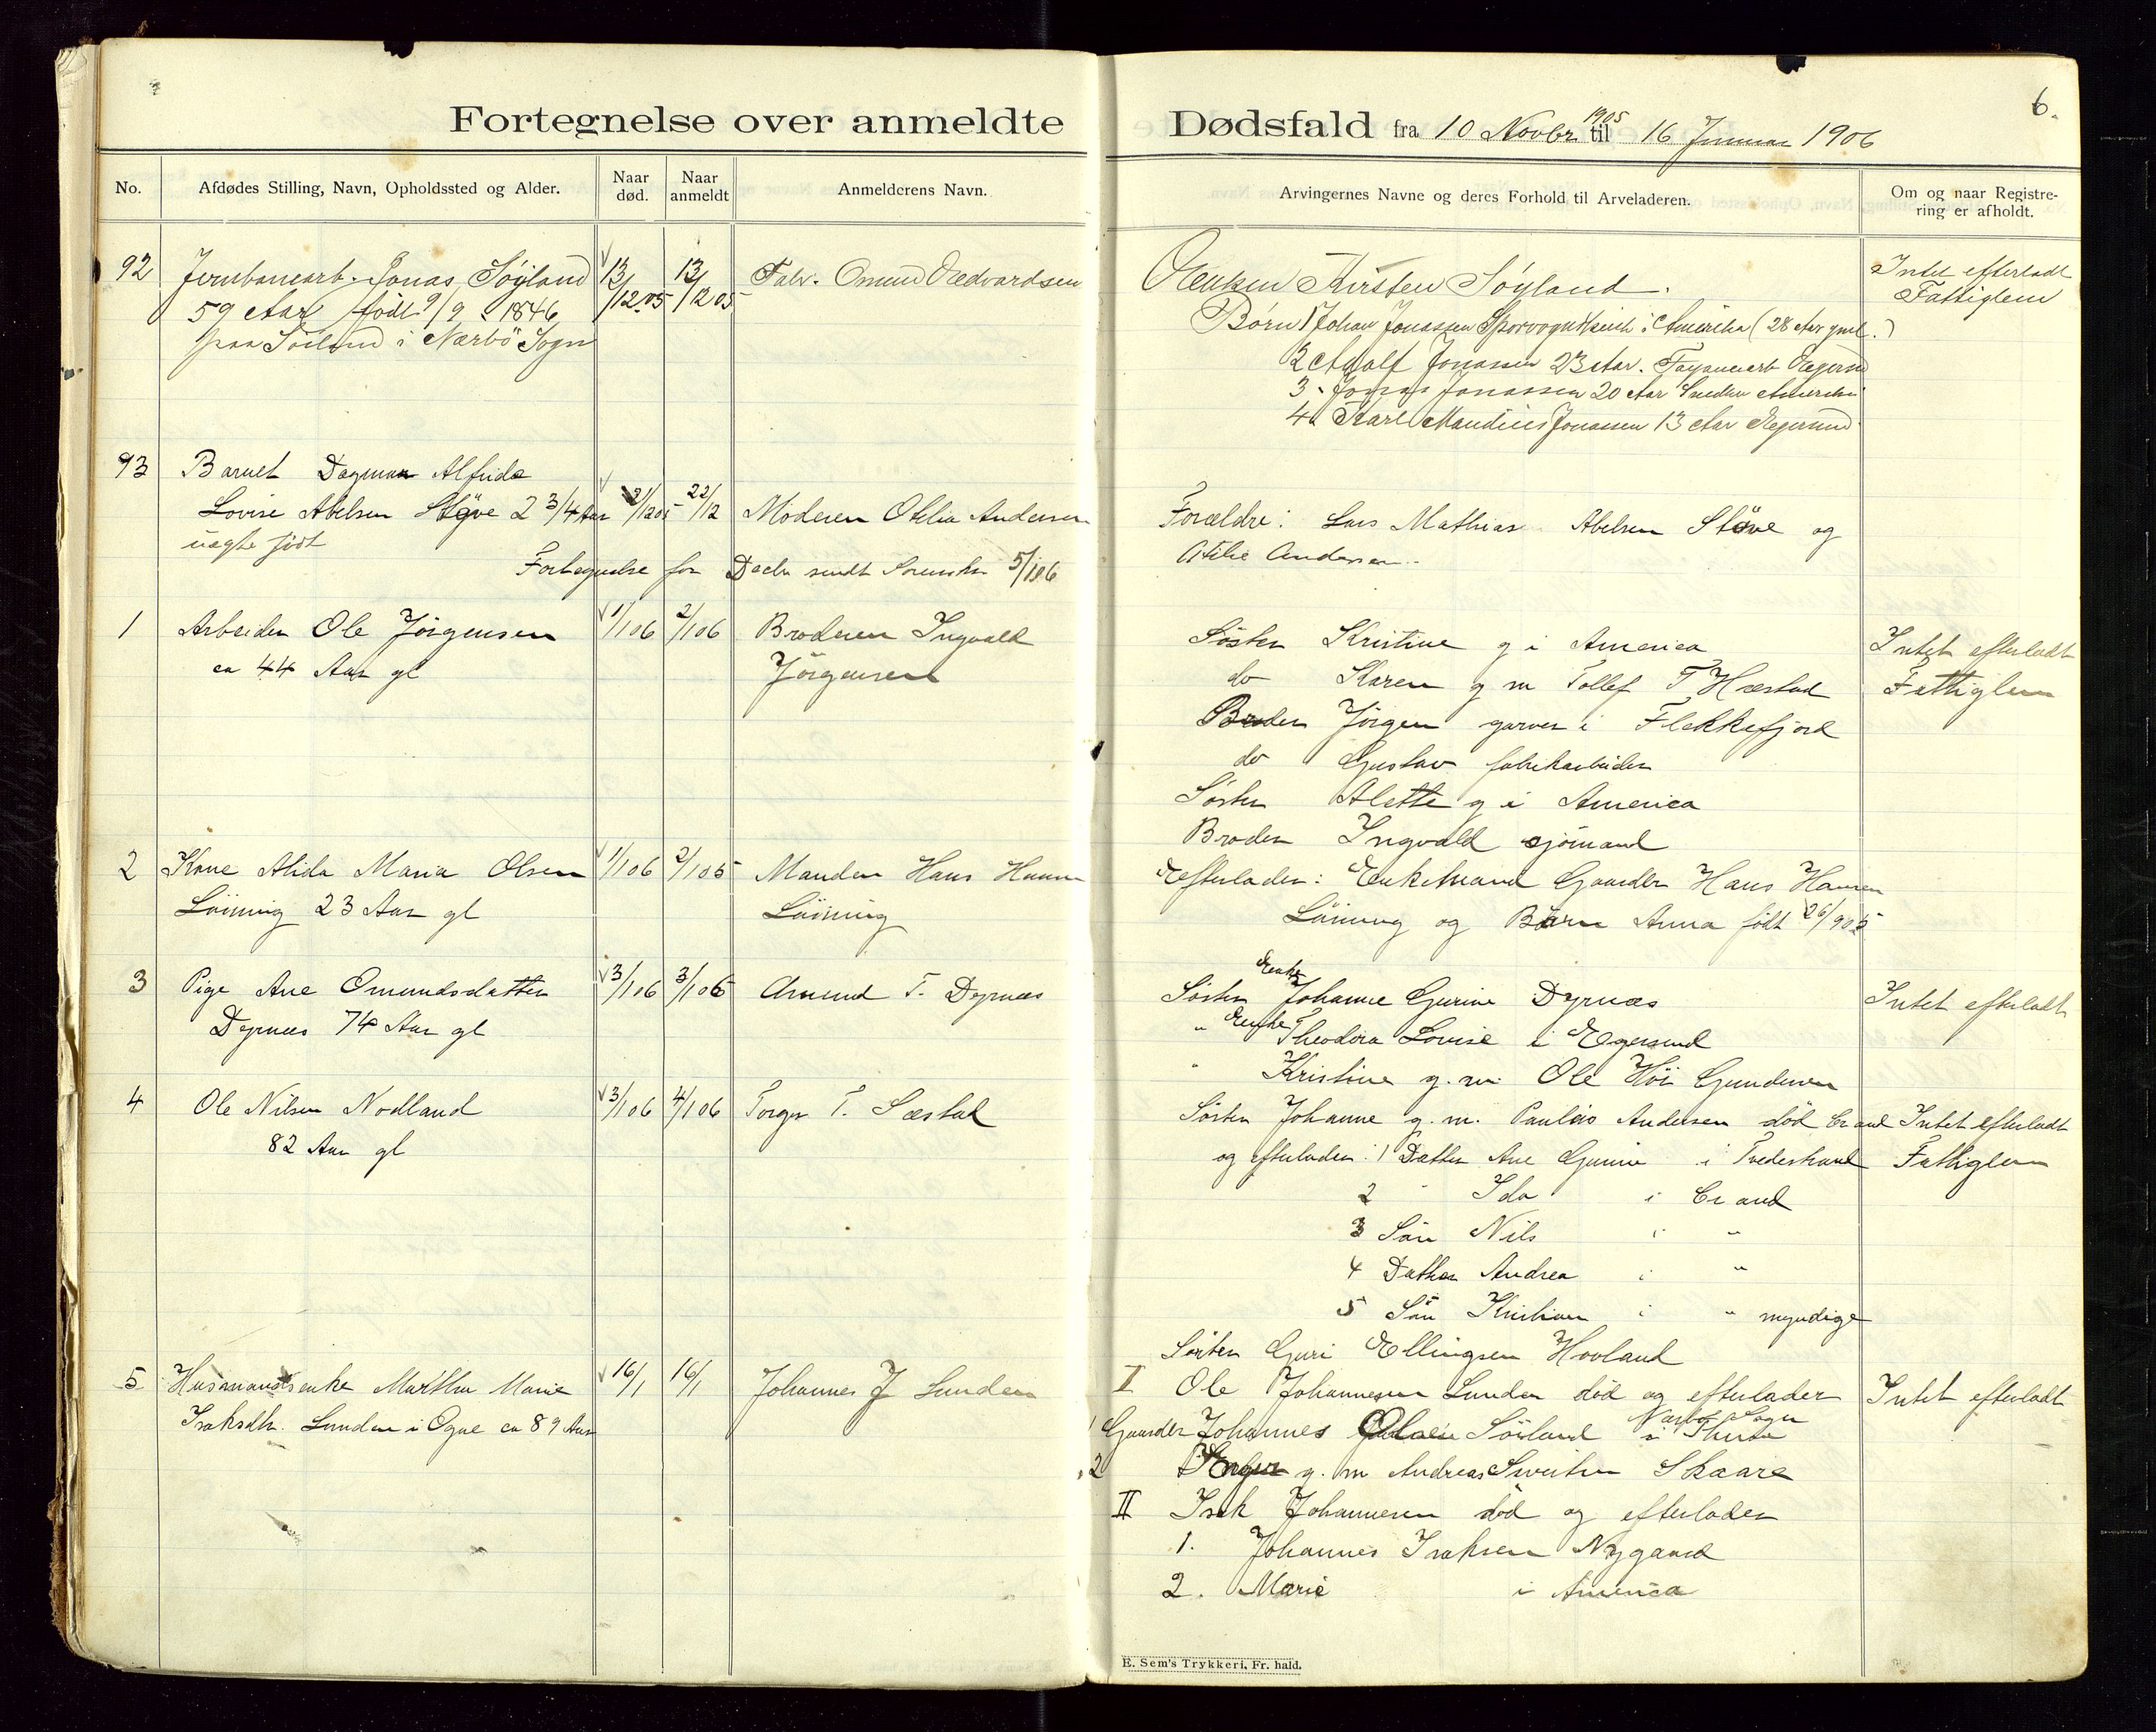 Fortegnelse over anmeldte Dødsfald fra 10 Novbr 1905 til 16 Januar 1906
6.
No.
Afdødes Stilling, Navn, Opholdssted og Alder.
Naar død.
Naar anmeldt
Anmelderens Navn.
Arvingernes Navne og deres Forhold til Arveladeren.
Om og naar Registrering er afholdt.
92 Jernbanearb. Jonas Søyland 13/12 05 13/12 05 Fabr. Omund Edvardsen
59 Aar født 9/9 1846
paa Søiland i Nærbö Sogn
Enken Kirsten Søyland.
Børn 1 Johan Jonassen i Amerika (28 Aar gml.)
2 Adolf Jonassen 23 Aar. Fayancearb Egersund
3. Jonas Jonassen 20 Aar Snedker Amerika
4 Karl Maudius Jonassen 13 Aar Egersund
Intet efterladt
Fattiglem
93 Barnet Dagmar Alfrida
Lovise Abelsen Støve 2 3/4 Aar 21/12 05 22/12 Moderen Otilia Andersen
uægte født
Fortegnelse for Decbr sendt Sorenskr 5/1 06
Forældre: Lars Mathias Abelsen Støve og
Otilie Andersen..
1 Arbeider Ole Jörgensen 1/1 06 2/1 06 Broderen Ingvald
ca 44 Aar gl Jörgensen
Söster Kristine g i America
do Karen g m Tollef T Hæstad
Broder Jörgen garver i Flekkefjord
do Gustav fabrikarbeider
Söster Alette g i America
Broder Ingvald sjömand
Intet efterladt
Fattiglem
2 Kone Alida Maria Olsen 1/1 06 2/1 05 Manden Hans Hansen
Löining 23 Aar gl Löining
Efterlader: Enkemand Gaardbr Hans Hansen
Löining og Barn Anna født 26/9 05
3 Pige Ane Omundsdatter 3/1 06 3/1 06 Omund T. Dyrnæs
Dyrnæs 74 Aar gl
Söster Enke Johanne Gurine Dyrnæs
" Enke Theodora Lovise i Egersund
" Kristine g. m. Ole Höi Gundersen
Intet efterladt
4 Ole Nilsen Nodland 3/1 06 4/1 06 Torger T. Sæstad
82 Aar gl
Söster Johanne g. m. Paulus Andersen död Cr and
og efterlader: 1 Datter Ane Gurine i Tvedestrand
2 " Ida i Cr and
3 Sön Nils i "
4 Datter Andrea i "
5 Sön Kristian i " myndige
Söster Guri Ellingsen Hovland
Intet efterladt
Fattiglem
5 Husmandsenke Martha Marie 16/1 16/1 Johannes J Lunden
Isaksdtr. Lunden i Ogne ca 89 Aar
I Ole Johannesen Lunden död og efterlader
1 Gaardbr Johannes Olsen Söiland i Nærbø Sogn
2 g. m Andreas Sivertsen Skaare
II Isak Johannesen död og efterlader
1. Johannes Isaksen Nygaard
2. Marie i America
Intet efterladt
E. Sem's Trykkeri, Fr. hald.